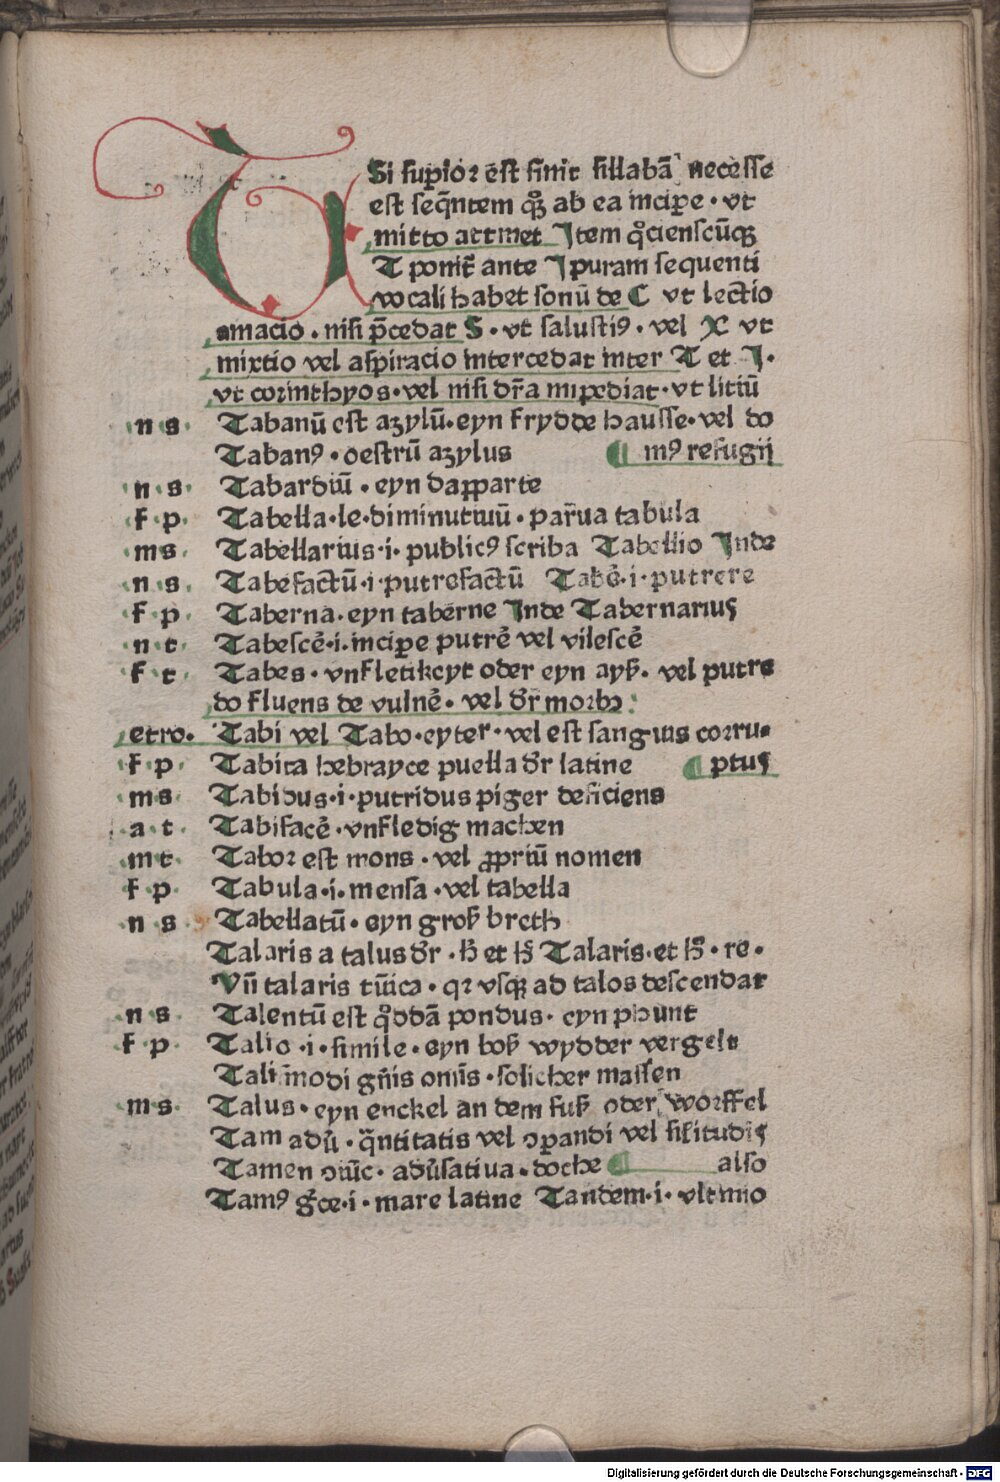 T
Si supior ēst finit sillabā necesse
est seq̄ntem qꝫ ab ea incipe · vt
mitto attinet Item qͦcienscūqꝫ
T ponit̄ ante I puram sequenti
vocali habet sonū de C vt lectio
amacio · nisi p̄cedat S · vt salustiꝰ · vel X vt
mixtio vel aspiracio intercedat inter T et I ·
vt corinthyos · vel nisi dr̄a impediat · vt litiū
n s Tabanū est azylū · eyn frydde hausse · vel do
Tabanꝰ · oestrū azylus mꝰ refugij
n s Tabardiū · eyn dapparte
f p Tabella · le · diminutiuū · par̄ua tabula
m s Tabellarius · i · publicꝰ scriba Tabellio Inde
n s Tabefactū · i · putrefactū Tabē · i · putrere
f p Taberna · eyn taberne Inde Tabernarius
n t Tabescē · i · incipe putrē vel vilescē
f t Tabes · vnfletikcyt oder eyn ayß · vel putre
do fluens de vulnē · vel dr̄ morbꝰ
etro · Tabi vel Tabo · eyter · vel est sanguis corru
f p Tabita hebrayce puella dr̄ latine ptus
m s Tabidus · i · putridus piger deficiens
a t Tabifacē · vnfledig machen
m t Tabor est mons · vel ꝓpriū nomen
f p Tabula · i · mensa · vel tabella
n s Tabellatū · eyn groß breth
Talaris a talus dr̄ · h̄ et h̄ Talaris · et h̄ · re ·
Vn̄ talaris tūica · qꝛ vsqꝫ ad talos descendat
n s Talentū est qͦddā pondus · eyn phunt
f p Talio · i · simile · eyn boß wydder vergelt
Tali m̄odi gn̄is om̄s · solicher massen
m s Talus · eyn enckel an dem fuß oder worffel
Tam adū · q̄ntitatis vel ↄpandi vel silitudis
Tamen ↄiūc · adūsatiua · doche also
Tamꝰ gͨce · i · mare latine Tandem · i · vltimo
Digitalisierung gefördert durch die Deutsche Forschungsgemeinschaft · DFG